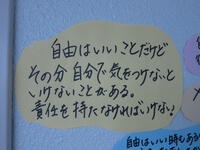 自由はいいことだけど
その分自分で気をつけないと
いけないことがある。
責任を持たなければいけない!
自由はいい時もある